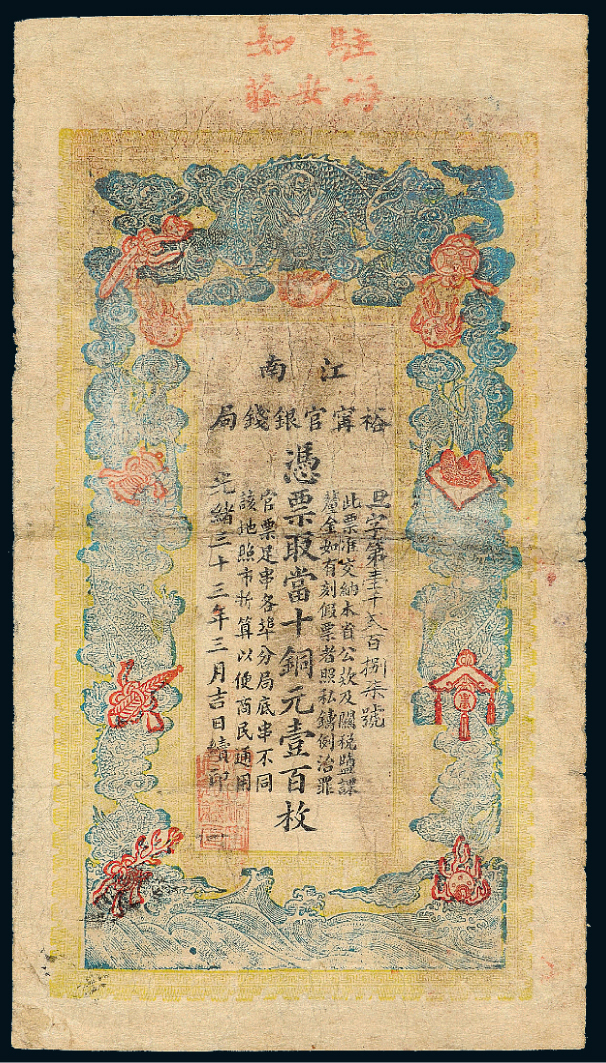 駐如
海安莊
江南
裕甯官銀錢局
旦字第壹千弍百捌柒號
此票准交納本省公款及關稅鹽課
釐金如有刻假票者照私鑄例治罪
憑票取當十銅元壹百枚
官票足串各埠分局底串不同
該地照市折算以便商民通用
光緒三十三年三月吉日續印